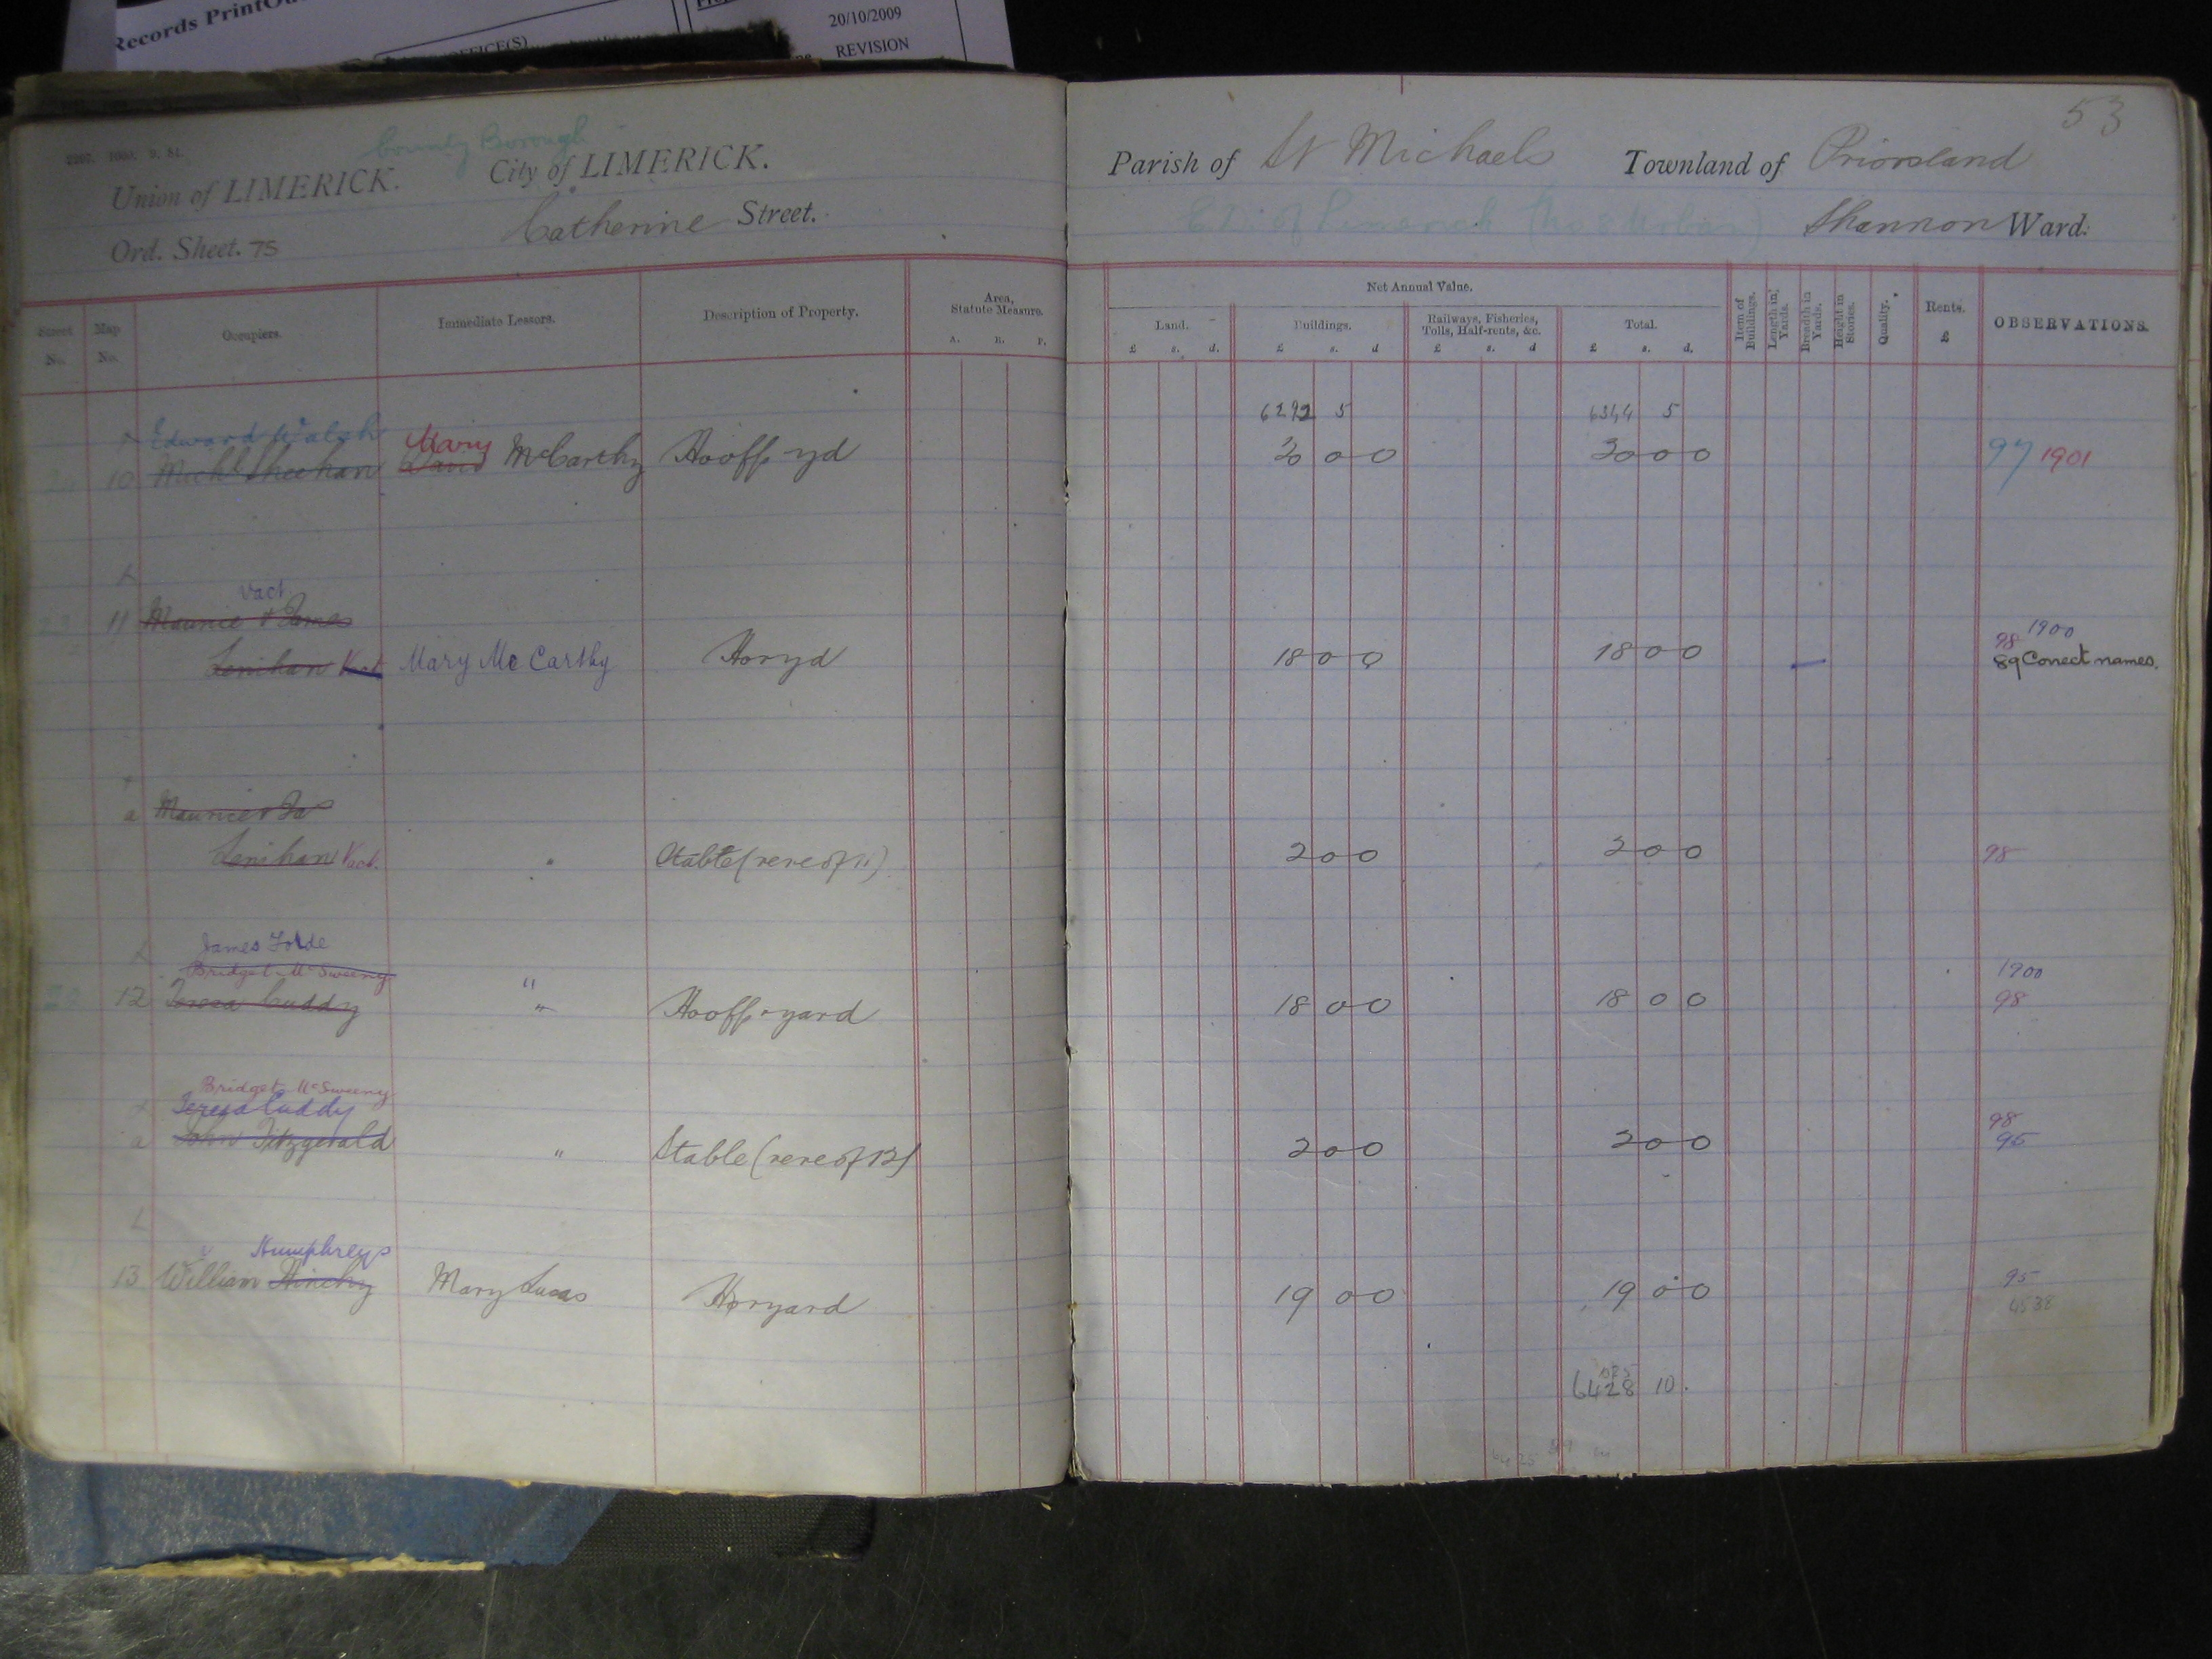 Records PrintOu
OFFICE(S)
20/10/2009
REVISION
53
2207. 1000. 9. 84.
County Borough
Union of LIMERICK. City of LIMERICK.
Ord. Sheet. 75 Catherine Street.
Parish of St Michaels Townland of Priorsland
Shannon Ward.
Street No. Map No. Occupiers. Immediate Lessors. Description of Property. Area, Statute Measure. A. R. P.
Net Annual Value.
Land. £ s. d. Buildings. £ s. d Railways, Fisheries, Tolls, Half-rents, &c. £ s. d Total. £ s. d.
Item of Buildings. Length in Yards. Breadth in Yards. Height in Stories. Quality. Rents. £ OBSERVATIONS.
6292 5 6344 5
Edward Walsh Mary
10 Michl Sheehan McCarthy Hooffs yd 20 0 0 20 0 0 97 1901
Vact
11 Maurice & James 1900
98
Lenihan Vact Mary McCarthy Horyd 18 0 0 18 0 0 89 Correct names.
a Maurice & Jas
Lenihan Vact. " Stable (rere of 11) 2 0 0 2 0 0 98
James Forde
Bridget McSweeny " 1900
12 Teresa Cuddy " Hooffs & yard 18 0 0 18 0 0 98
Bridget McSweeny
Teresa Cuddy 98
a John Fitzgerald " Stable (rere of 12) 2 0 0 2 0 0 95
Humphreys
13 William Hinchy Mary Lucas Horyard 19 0 0 19 0 0 95
4538
6428 10.